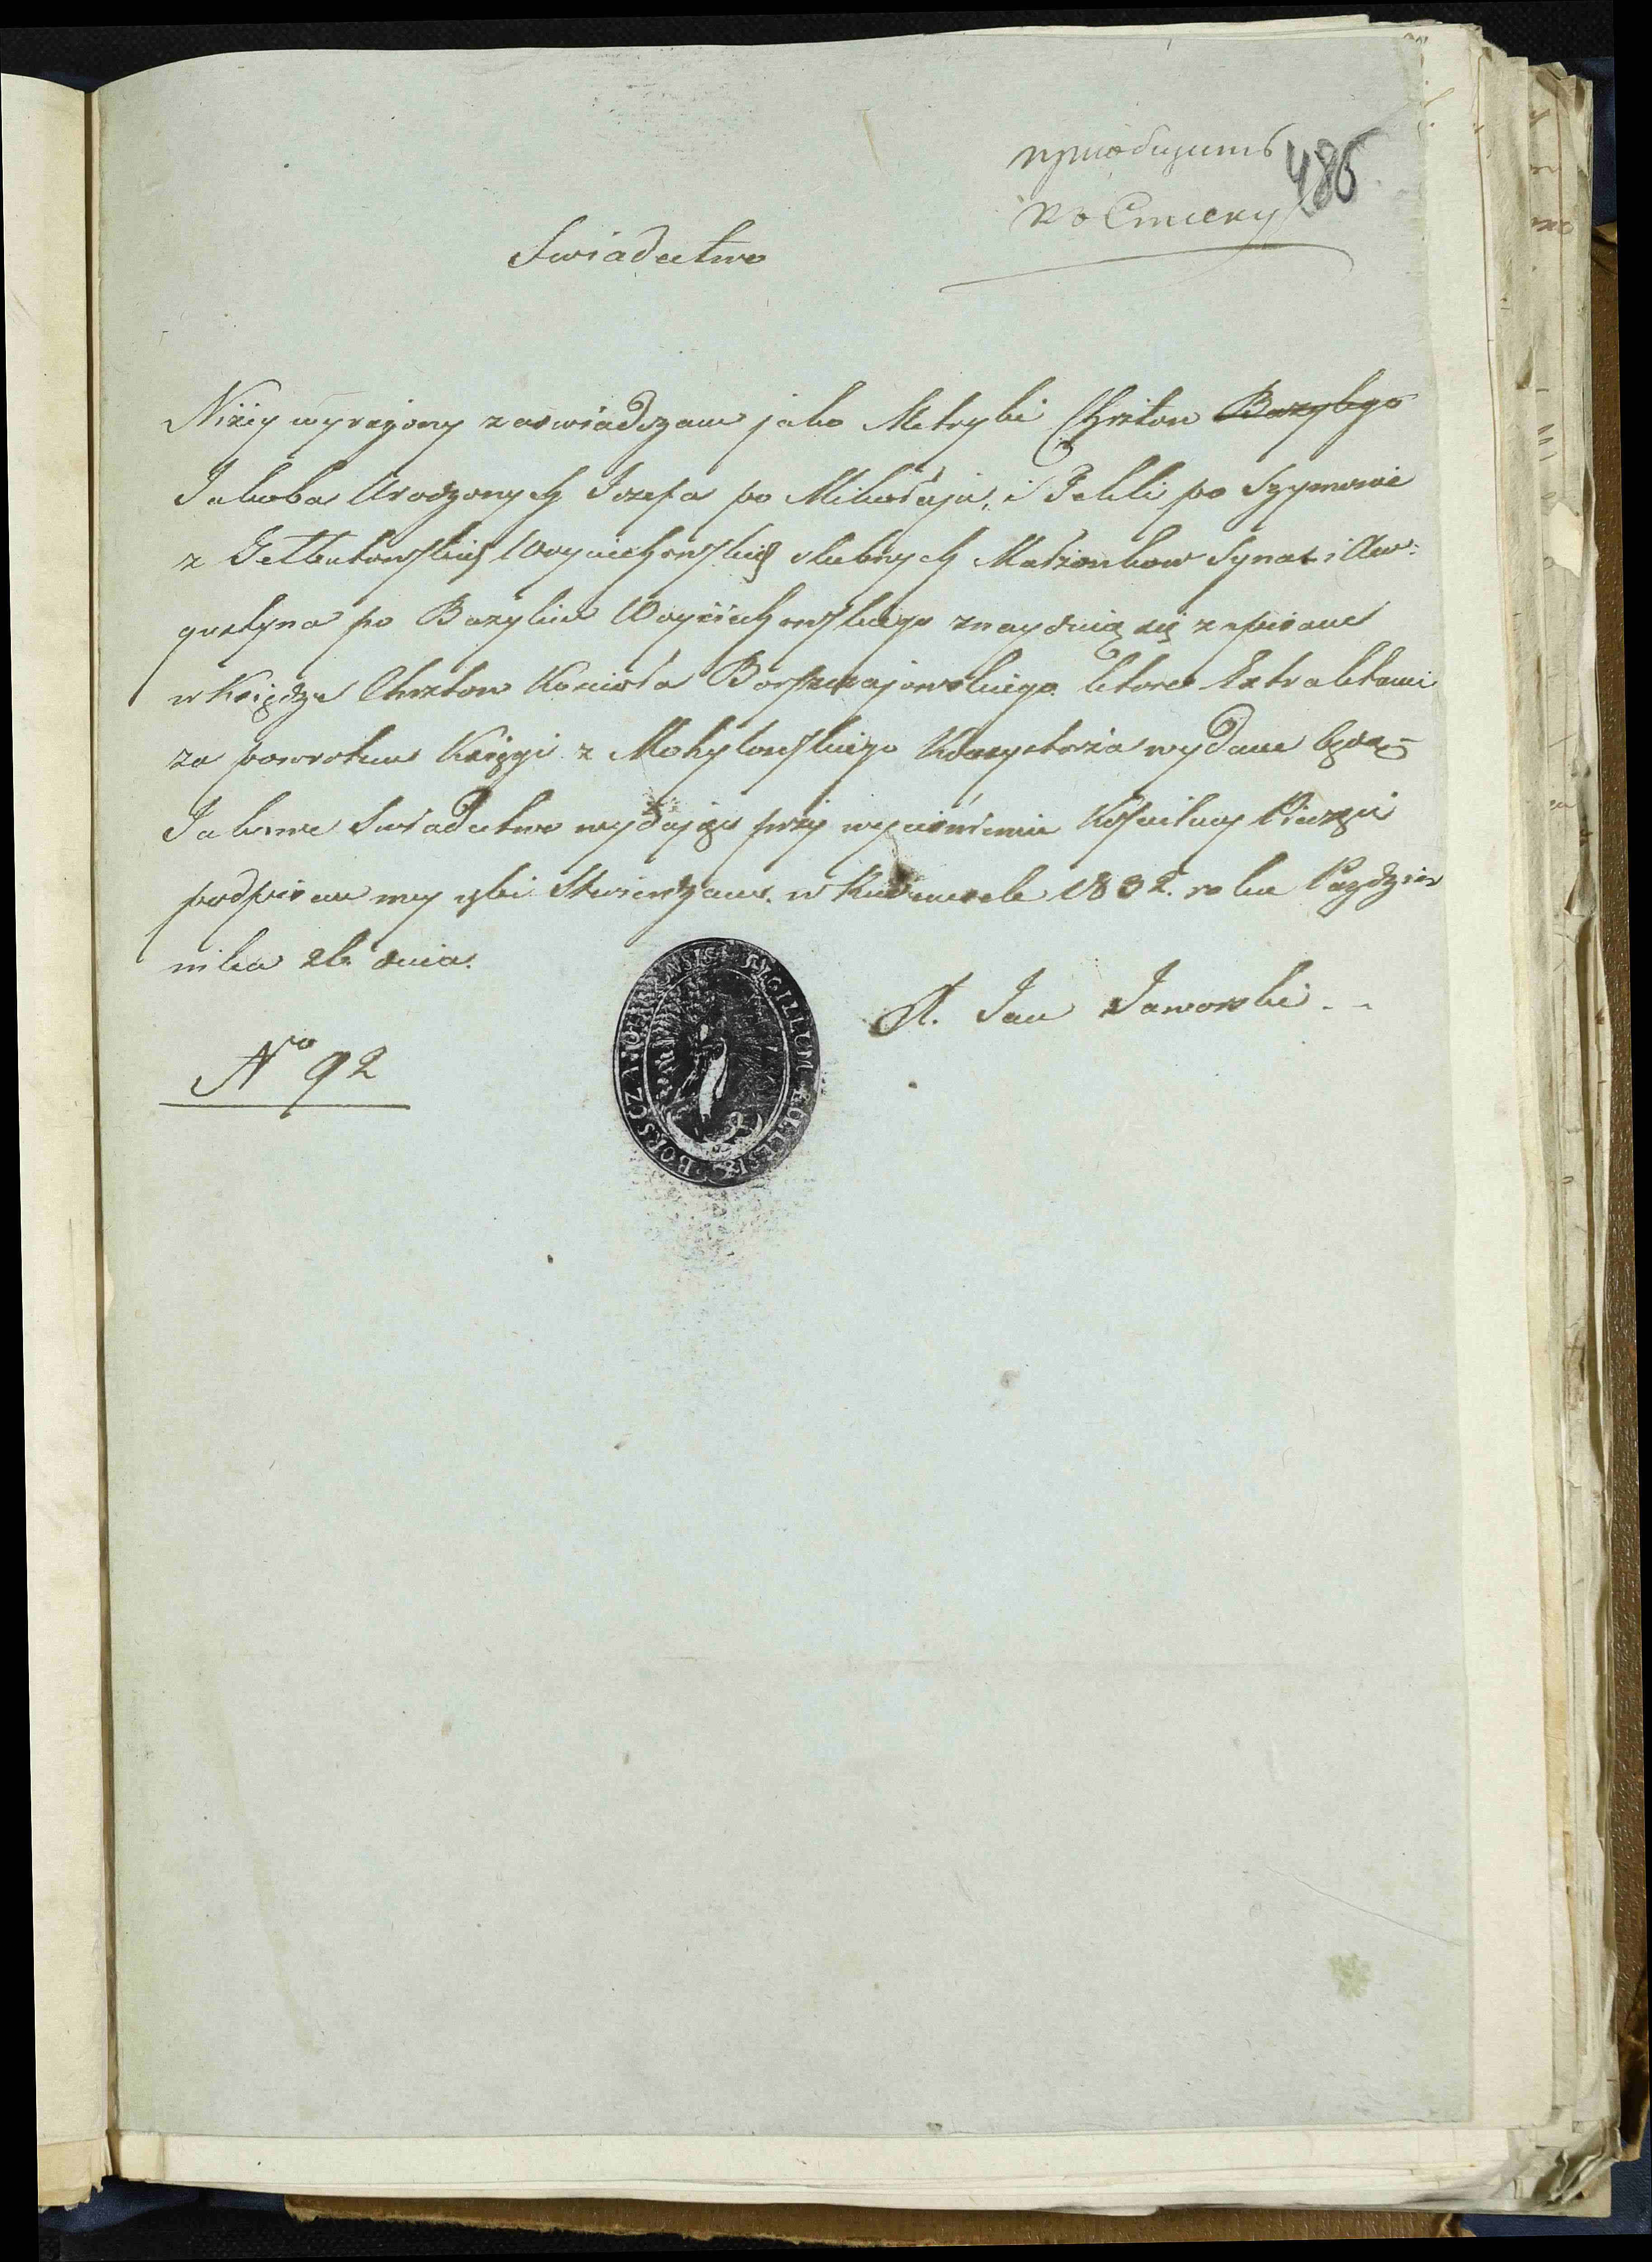 приобщить
къ списку
486
Swiadectwo
Niżey wyrażony zaswiadczam jako Metryki Chrztow Bazylego
Jakoba Urodzonych Jozefa po Mikołaju, i Tekli po Szymonie
z Woyciechowskich slubnych Małżonkow Syna i Aw:
gustyna po Bazylim Woyciechowskiego znayduią się zapisane
w Księdze Chrztow Kościoła Borszczajowskiego ktore Extraktami
za powrotem Księgi z Mohylowskiego Konsystorza wydane będą
Jakowe Swiadectwo wydając przy wyciśnieniu Kościelney Pieczęci
podpisem my ręki Stwierdzam. w 1832. roku Pazdzier
nika 26 dnia.
X. Jan Jaworski
No 92
SIGILLUM ECCLESIÆ BORSCZAIOVIENSIS